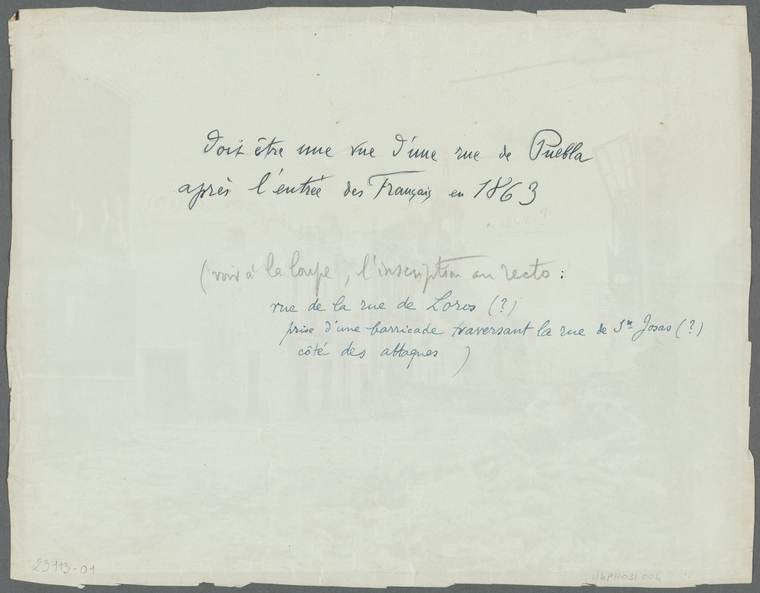 doit être une vue d'une rue de Puebla
après l'entrée des Français en 1863
(voir à la loupe, l'inscription au recto :
vue de la rue de Loros (?)
prise d'une barricade traversant la rue de Sn Josas (?)
côté des attaques )
25113-01
114PH031 004